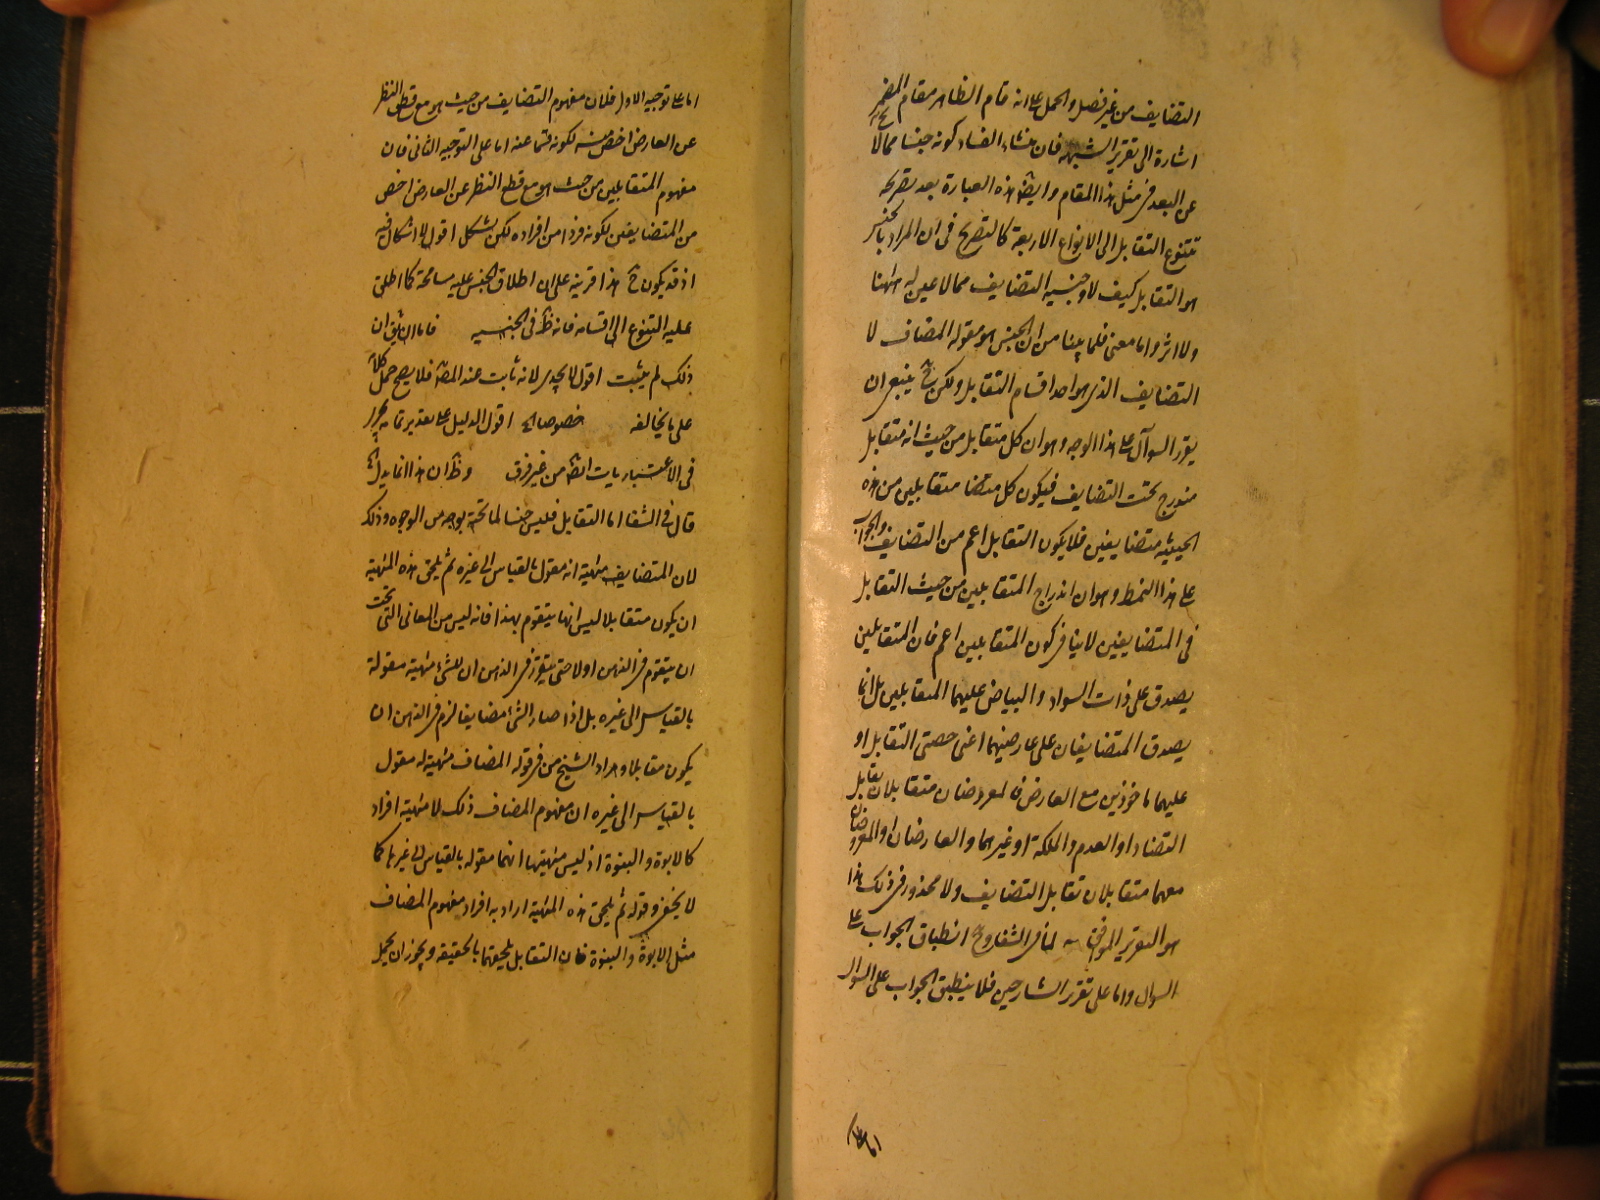 التضايف من غير فصل والحمل على انه قام الظاهر مقام المضمر
اشارة الى تقرير الشبهه فان منشاء الفساد كونه جنسا مما لا
عن البعد فى مثل هذا المقام وايضا هذه العبارة بعد تصريحه
تتنوع التقابل الى الانواع الاربعة كالتصريح فى ان المراد بالجنس
هو التقابل كيف لا وجنسية التضايف مما لا عين له ههنا
ولا اثر واما معنى فلما بينا من ان الجنس هو مقوله المضاف لا
التضايف الذى هو احد اقسام التقابل ولكن ح ينبغى ان
يقرر السوال على هذا الوجه وهو ان كل متقابل من حيث انه متقابل
مندرج تحت التضايف فيكون كل متقابلين من هذه
الحيثيه متضايفين فلا يكون التقابل اعم من التضايف والجواب
على هذا النمط وهو ان اندراج المتقابلين من حيث التقابل
فى المتضايفين لا ينافى كون المتقابلين اعم فان المتقابلين
يصدق على ذات السواد والبياض عليهما المتقابلين بل انما
يصدق المتضايفان على عارضيهما اعنى حصتى التقابل او
عليهما ماخوذين مع العارض فالمعروضان متقابلان تقابل
التضاد او العدم والملكة او غيرهما والعارضان او المعروضان
معهما متقابلان تقابل التضايف ولا محذور فى ذلك هذا
هو التقرير الموافق لما فى الشفا وح انطباق الجواب على
السوال واما على تقرير الشارحين فلا ينطبق الجواب على السوال
اما على
اما على توجيه الاول فلان مفهوم التضايف من حيث هو مع قطع النظر
عن العارض اخص منه لكونه قسما عنه اما على التوجيه الثانى فان
مفهوم المتقابلين من حيث هو مع قطع النظر عن العارض اخص
من المتضايفين لكونه فردا من افراده لكن يشكل اقول لا اشكال فيه
اذ قد يكون ح هذا قرينة على ان اطلاق الجنس عليه مسامحة كما اطلق
عليه التنوع الى اقسامه فانه ظ فى الجنسيه فاما ان يق ان
ذلك لم يثبت اقول لا يجدى لانه ثابت عند المص فلا يصح حمل كلامه
على ما يخالفه خصوصا اه اقول الدليل على تقدير تمامه يجرى
فى الاعتباريات ايضا من غير فرق وظ ان هذا انما يدل اه
قال فى الشفا اما التقابل فليس جنسا لما تحته بوجه من الوجوه وذلك
لان المتضايف مهيته انه مقول بالقياس الى غيره ثم يلحق هذه المهية
ان يكون متقابلا ليس انها يتقوم بهذا فانه ليس من المعانى التى تحت
ان يتقوم فى الذهن اولا حتى يتقرر فى الذهن ان للشئ مهية مقولة
بالقياس الى غيره بل اذا صار الشئ مضايفا لزم فى الذهن ان
يكون مقابلا ومراد الشيخ من فى قوله المضاف مهيته له مقول
بالقياس الى غيره ان مفهوم المضاف ذلك لا مهية افراد
كالابوة والبنوة اذ ليس مهيتها انهما مقوله بالقياس الى غيرها كما
لا يخفى وقوله ثم يلحق هذه المهية اراد به افراد مفهوم المضاف
مثل الابوة والبنوة فان التقابل يلحقهما بالحقيقه ويجوز ان يحمل